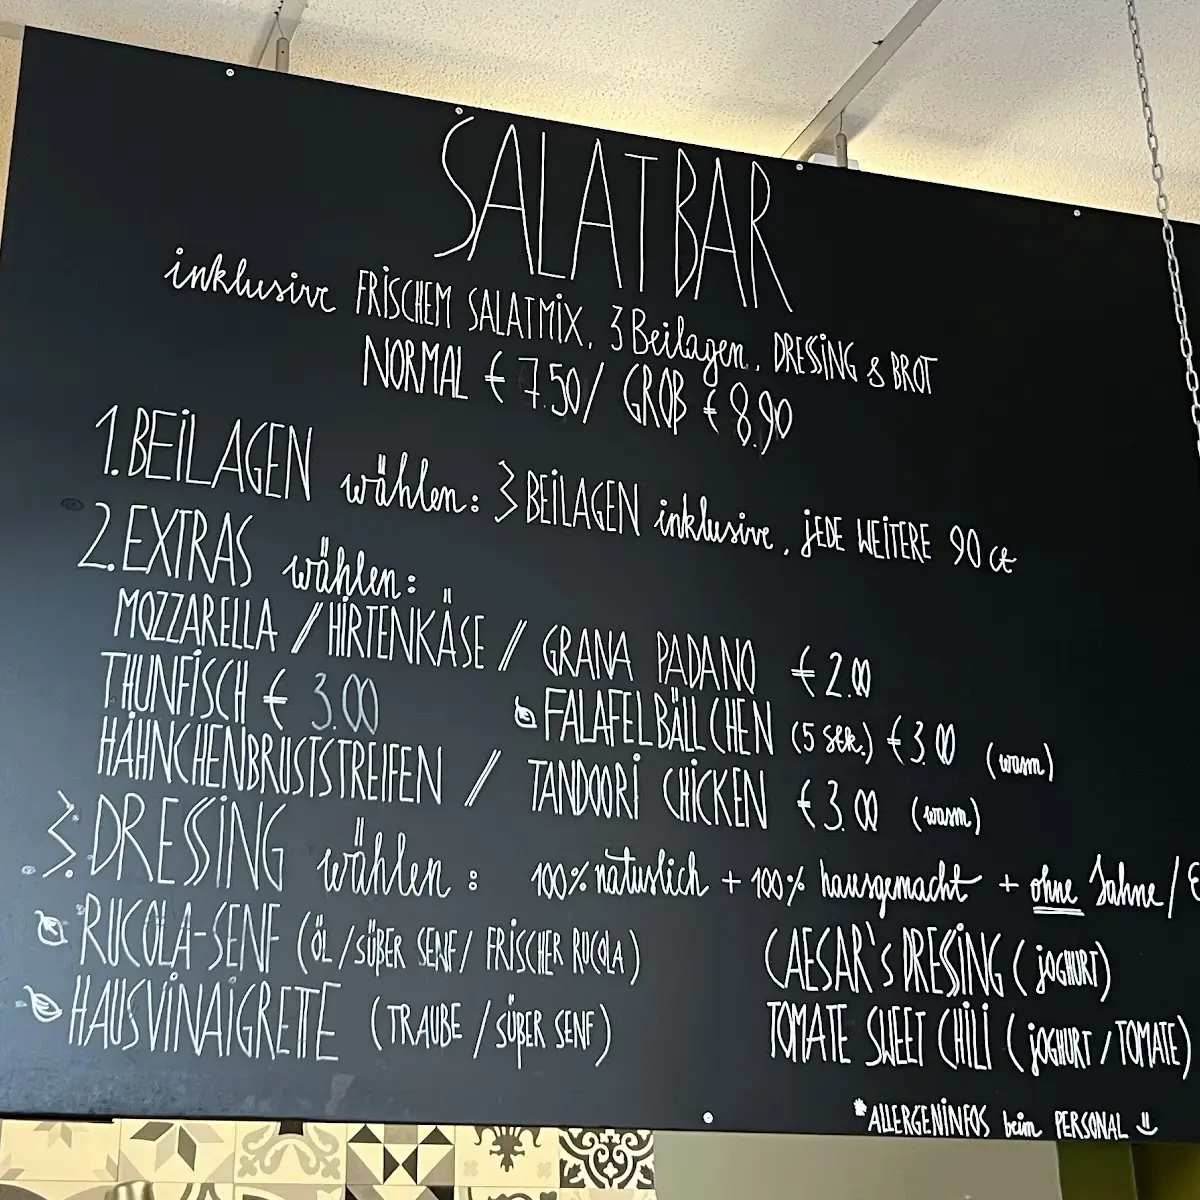 SALATBAR
inklusive FRISCHEM SALATMIX, 3 Beilagen, DRESSING & BROT
NORMAL € 7.50/ GROß € 8.90
1. BEILAGEN wählen: 3 BEILAGEN inklusive, JEDE WEITERE 90 ct
2. EXTRAS wählen:
MOZZARELLA / HIRTENKÄSE // GRANA PADANO € 2.00
THUNFISCH € 3.00 FALAFELBÄLLCHEN (5 Stk.) € 3.00 (warm)
HÄHNCHENBRUSTSTREIFEN // TANDOORI CHICKEN € 3.00 (warm)
3. DRESSING wählen: 100% natürlich + 100% hausgemacht + ohne Sahne/
RUCOLA-SENF (ÖL/SÜßER SENF/ FRISCHER RUCOLA) CAESAR'S DRESSING (JOGHURT)
HAUSVINAIGRETTE (TRAUBE /SÜßER SENF) TOMATE SWEET CHILI (JOGHURT/TOMATE)
*ALLERGENINFOS beim PERSONAL